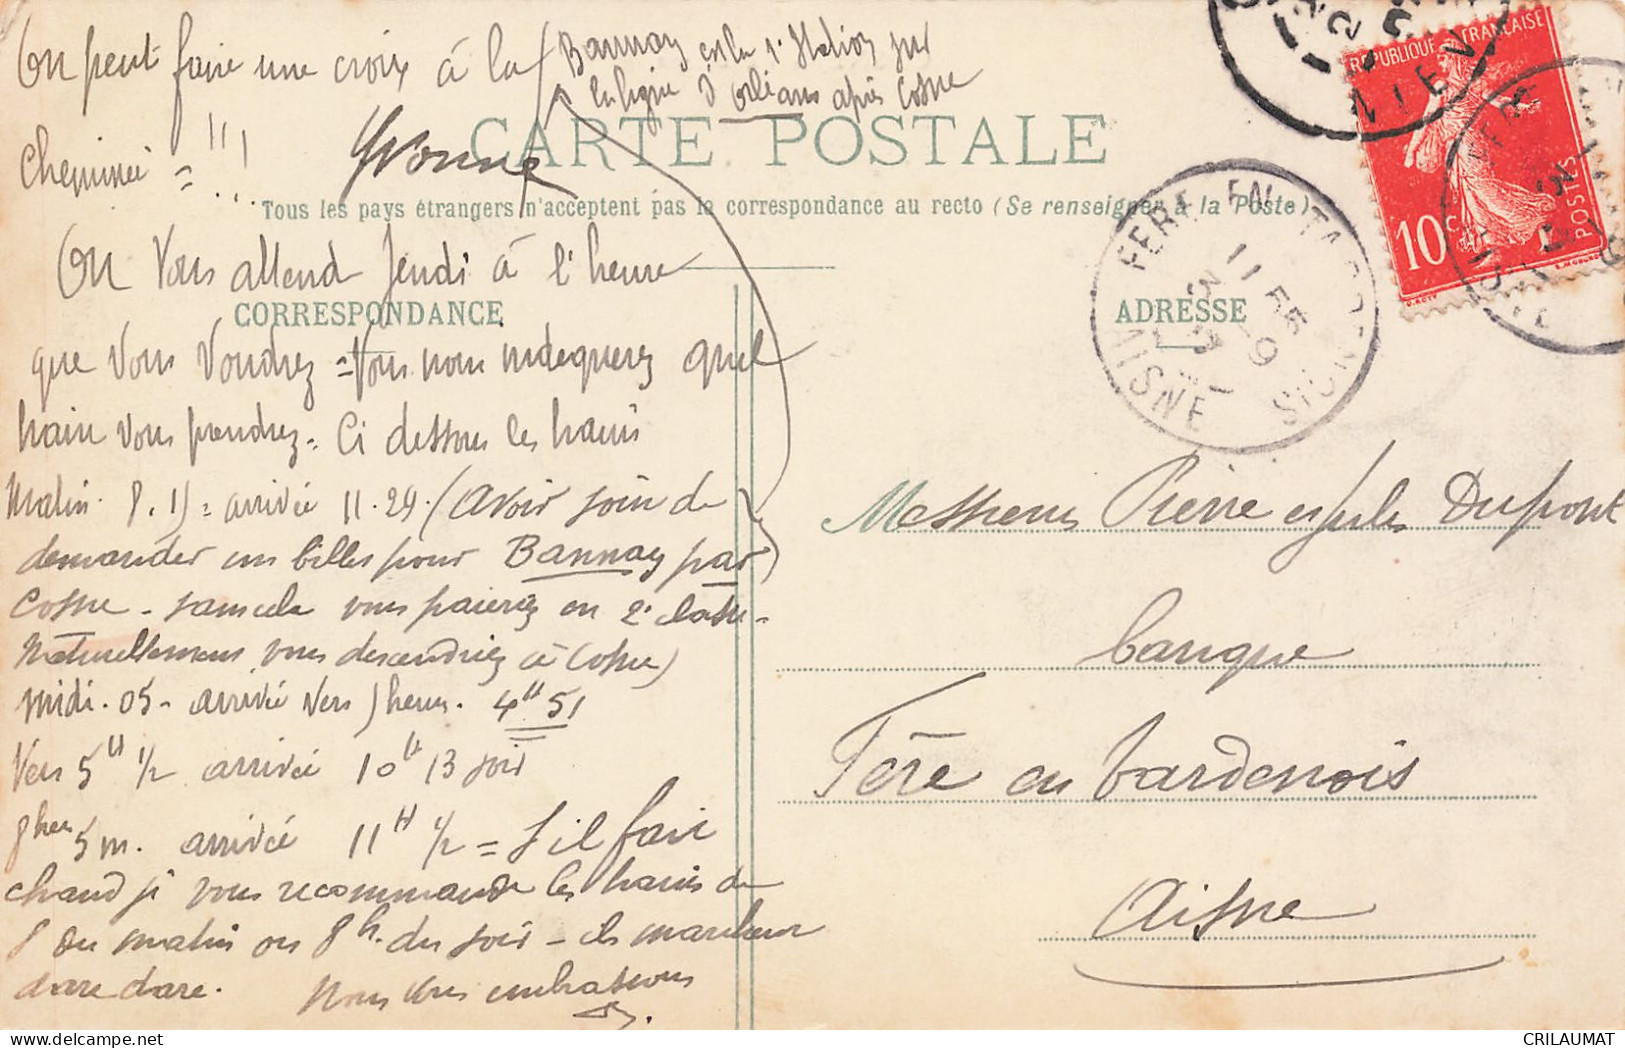 On peut faire une croix à la
cheminée = !!!
Bannay est la 1e Station sur
la ligne d'Orléans après Cosne
Yvonne
CARTE POSTALE
Tous les pays étrangers n'acceptent pas la correspondance au recto (Se renseigner à la Poste)
On vous attend Jeudi à l'heure
CORRESPONDANCE
que vous voudrez = Vous nous indiquerez quel
train vous prendrez = Ci dessous les trains
Matin. 8. 17 = arrivée 11.24. (Avoir soin de
demander un billet pour Bannay par
Cosne - sans cela vous paieriez en 2e classe -
Naturellement vous descendriez à Cosne)
midi. 05 - arrivée vers 5 heures. 4H 51
Vers 5H 1/2 arrivée 10H 13 soir
8heures 5m. arrivée 11H 1/2 = S'il fait
chaud je vous recommande les trains de
8 du matin ou 8h. du soir - ils marchent
dare dare. Nous vous embrassons
ADRESSE
Messieurs Pierre et Jules Dupont
banque
Fère en Tardenois
Aisne
REPUBLIQUE FRANÇAISE
10c
POSTES
FERE EN TARDENOIS
AISNE
11 55
FERE EN TARDENOIS
CRILAUMAT